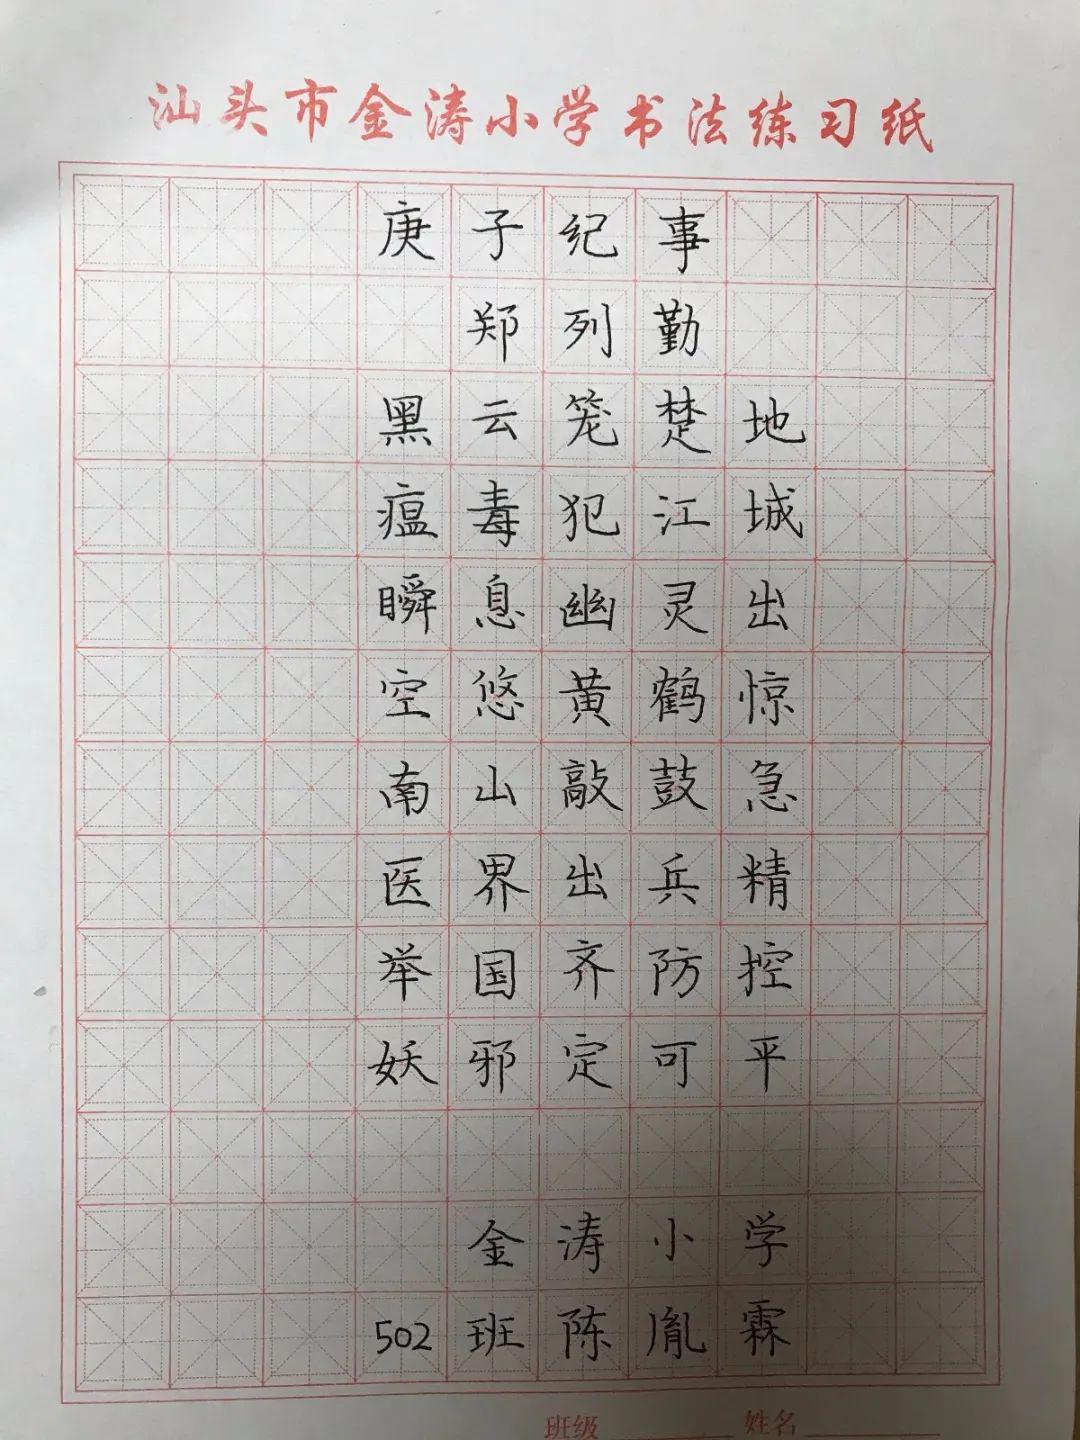 汕头市金涛小学书法练习纸
庚子纪事
郑列勤
黑云笼楚地
瘟毒犯江城
瞬息幽灵出
空悠黄鹤惊
南山敲鼓急
医界出兵精
举国齐防控
妖邪定可平
金涛小学
502班陈胤霖
班级 姓名